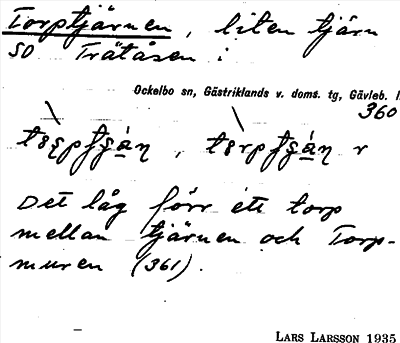 Torptjärnen, liten tjärn
SO Trätåsen i
Ockelbo sn, Gästriklands v. doms. tg, Gävleb. l
360
Det låg förr ett torp
mellan tjärnen och Torp-
muren (361).
LARS LARSSON 1935